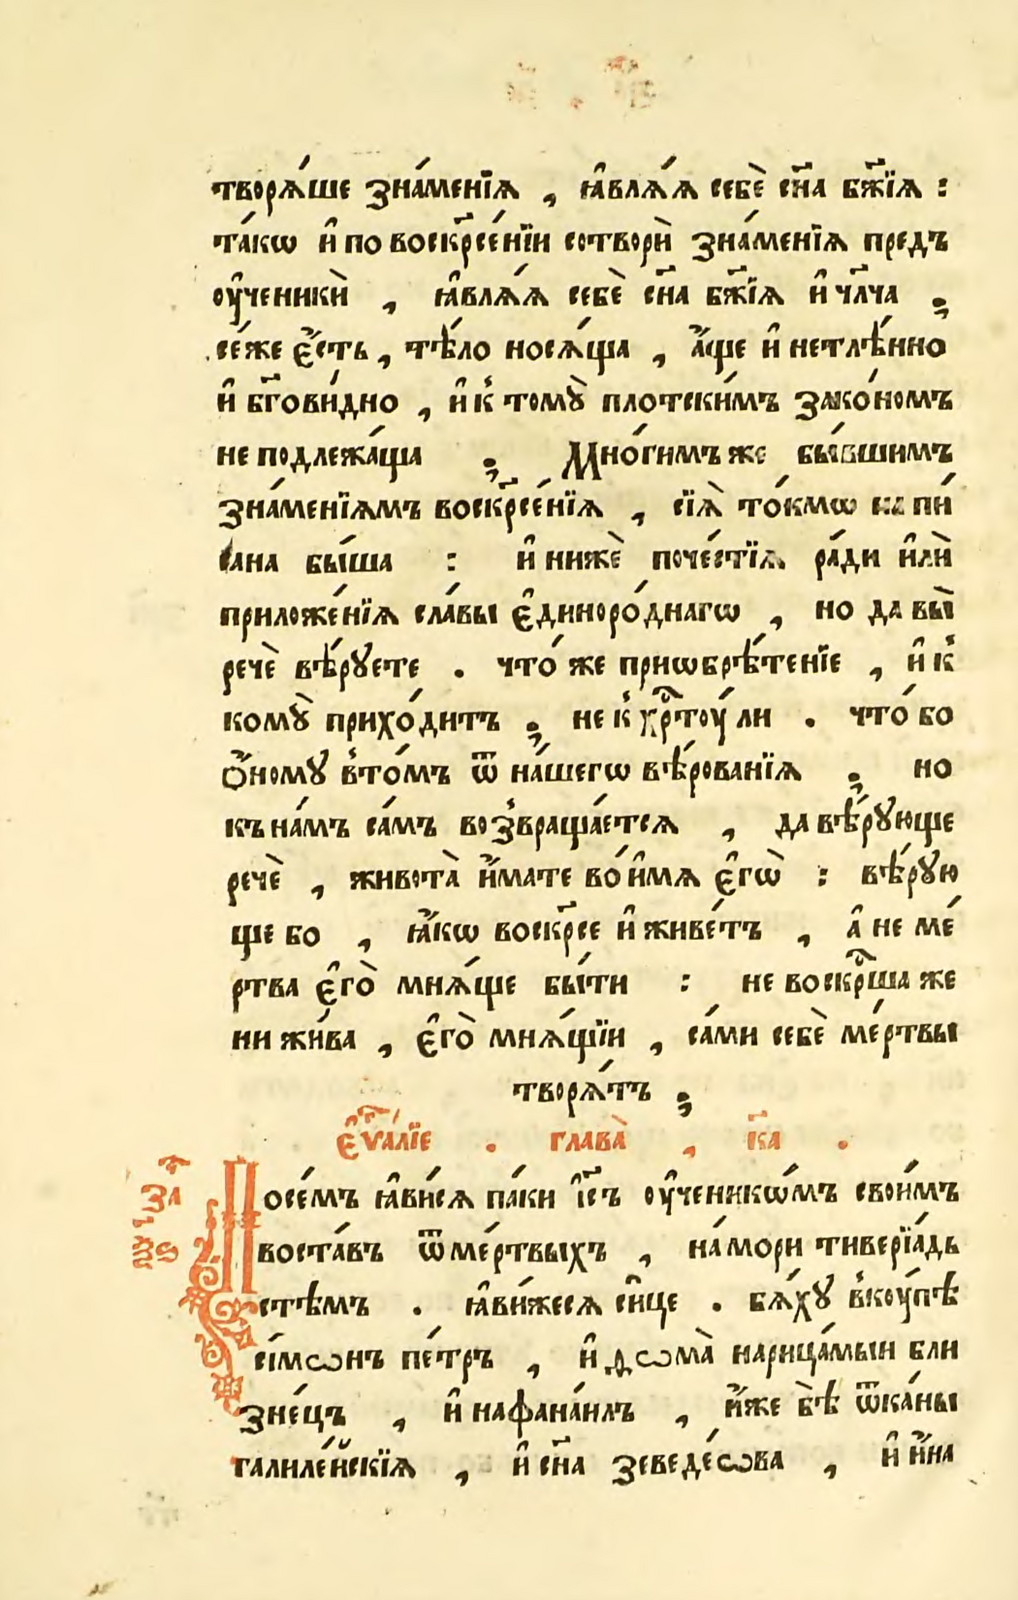 творѧ́ше зна́менїѧ , ꙗ҆влѧ́ѧ себѐ сн҃а бж҃їѧ :
та́кѡ и҆ по воскр҃се́нїи сотворѝ зна́менїѧ предъ
ᲂу҆ченикѝ , ꙗ҆влѧ́ѧ себѐ сн҃а бж҃їѧ и҆ чл҃ча ;
се́же є҆́сть , тѣ́ло носѧ́ща , а҆́ще и҆ нетлѣ́нно
и҆ бг҃ови́дно , и҆ к̾ томꙋ̀ плотски́мъ зако́номъ
не подлежа́ща ; Мно́гимъ же бы́вшимъ
зна́менїѧмъ воскр҃се́нїѧ , сїѧ̀ то́кмѡ на пи́
сана бы́ша : и҆ нижѐ поче́стїѧ ра́ди и҆лѝ
приложе́нїѧ сла́вы є҆диноро́днагѡ , но да вы̀
речѐ вѣ́рꙋете . что́ же приѡбрѣ́тенїе , и҆ к̾
комꙋ̀ прихо́дитъ ; не к̾ хр҃тоу́ ли . что́ бо
ѻ҆́номꙋ в̾то́мъ ѿ на́шегѡ вѣ́рованїѧ ; но
къ на́мъ са́мъ воз̾враща́етсѧ , да вѣ́рꙋюще
речѐ , живота̀ и҆́мате во́ и҆мѧ є҆гѡ̀ : вѣ́рꙋю
ще бо , ꙗ҆́кѡ воскр҃се и҆ живе́тъ , а҆ не ме́
ртва є҆го̀ мнѧ́ще бы́ти : не воскр҃ша же
ни жи́ва , є҆го̀ мнѧ́щїи , са́ми себѐ ме́ртвы
творѧ́тъ ;
є҆ѵⷢ҇а́лїе . глава̀ , к҃а .
за҃
ПОсе́мъ ꙗ҆ви́сѧ па́ки і҆с҃ъ ᲂу҆ченикѡ́мъ свои́мъ
воста́въ ѿ ме́ртвыхъ , на́ мори тиверїа́дь
стѣмъ . ꙗ҆ви́жесѧ си҆́це . бѧ́хꙋ в̾коу́пѣ
сі́мѡнъ пе́тръ , и҆ ѳѡма̀ нарица́мыи бли
зне́цъ , и҆ наѳана́илъ , и҆́же бѣ̀ ѿ ка́ны
галиле́йскїѧ , и҆ сн҃а зеведе́ѡва , и҆ и҆́на